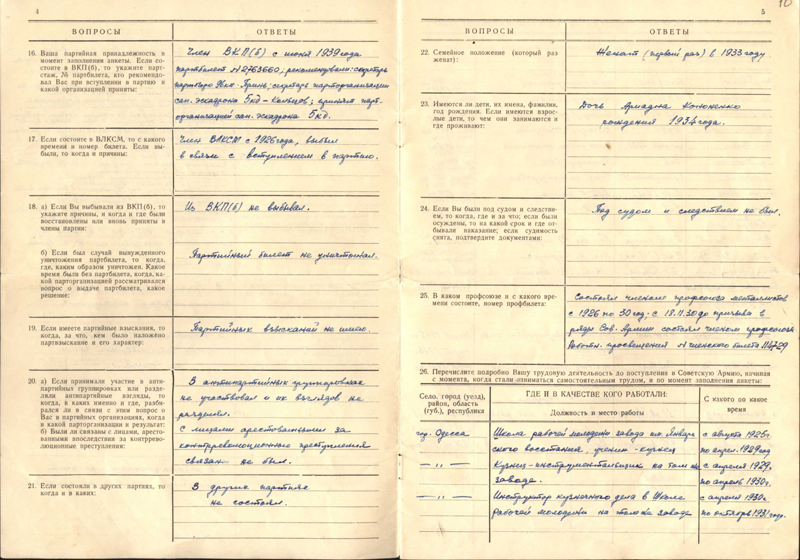 4
ВОПРОСЫ
ОТВЕТЫ
16. Ваша партийная принадлежность в
момент заполнения анкеты. Если со-
стоите в ВКП(б), то укажите парт-
стаж, № партбилета, кто рекомендо-
вал Вас при вступлении в партию и
какой организацией приняты:
Член ВКП(б) с июня 1939 года
партбилет №2763660; рекомендовали: секретарь
партбюро Гринь; секретарь парторганизации
сан. эскадрона 5кд – Кольцов; принят парт-
организацией сан. эскадрона 5кд.
17. Если состоите в ВЛКСМ, то с какого
времени и номер билета. Если вы-
были, то когда и причины:
Член ВЛКСМ с 1926 года, выбыл
в связи с вступлением в партию.
18. а) Если Вы выбывали из ВКП(б), то
укажите причины, и когда и где были
восстановлены или вновь приняты в
члены партии:
Из ВКП(б) не выбывал.
б) Если был случай вынужденного
уничтожения партбилета, то когда,
где, каким образом уничтожен. Какое
время были без партбилета, когда, ка-
кой парторганизацией рассматривался
вопрос о выдаче партбилета, какое
решение:
Партийный билет не уничтожал.
19. Если имеете партийные взыскания, то
когда, за что, кем было наложено
партвзыскание и его характер:
Партийных взысканий не имею.
20. а) Если принимали участие в анти-
партийных группировках или разде-
ляли антипартийные взгляды, то
когда, в каких именно и где, разби-
рался ли в связи с этим вопрос о
Вас в партийных организациях, когда
в какой парторганизации и результат:
б) Были ли связаны с лицами, аресто-
ванными впоследствии за контррево-
люционные преступления:
В антипартийных группировках
не участвовал и их взглядов не
разделял.
С лицами арестованными за
контрреволюционные преступления
связан не был.
21. Если состояли в других партиях, то
когда и в каких:
В других партиях
не состоял.
10
5
ВОПРОСЫ
ОТВЕТЫ
22. Семейное положение (который раз
женат):
Женат (первый раз) в 1933 году
23. Имеются ли дети, их имена, фамилия,
год рождения. Если имеются взрос-
лые дети, то чем они занимаются и
где проживают:
Дочь Ариадна Кононенко
рождения 1934 года.
24. Если Вы были под судом и следстви-
ем, то когда, где и за что; если были
осуждены, то на какой срок и где от-
бывали наказание; если судимость
снята, подтвердите документами:
Под судом и следствием не был.
25. В каком профсоюзе и с какого вре-
мени состоите, номер профбилета:
Состоял членом профсоюза металлистов
с 1926 по 30 год; с 18.11.30 до призыва в
ряды Сов. Армии состоял членом профсоюза
Работн. просвещения № членского билета
26. Перечислите подробно Вашу трудовую деятельность до поступления в Советскую Армию, начиная
с момента, когда стали заниматься самостоятельным трудом, и по момент заполнения анкеты:
Село, город (уезд),
район, область
(губ.), республика
ГДЕ И В КАЧЕСТВЕ КОГО РАБОТАЛИ:
Должность и место работы
С какого по какое
время
гор. Одесса
Школа рабочей молодежи завода им. Январ
с августа 1925г.
ского восстания, ученик-кузнец
по апрел. 1929 год
— „ —
Кузнец-инструментальщик на том же
с апреля 1929г.
заводе.
по апрель 1930г.
— „ —
Инструктор кузнечного дела в Школе
с апреля 1930г.
рабочей молодежи на том же заводе
по октябрь 1931 года.